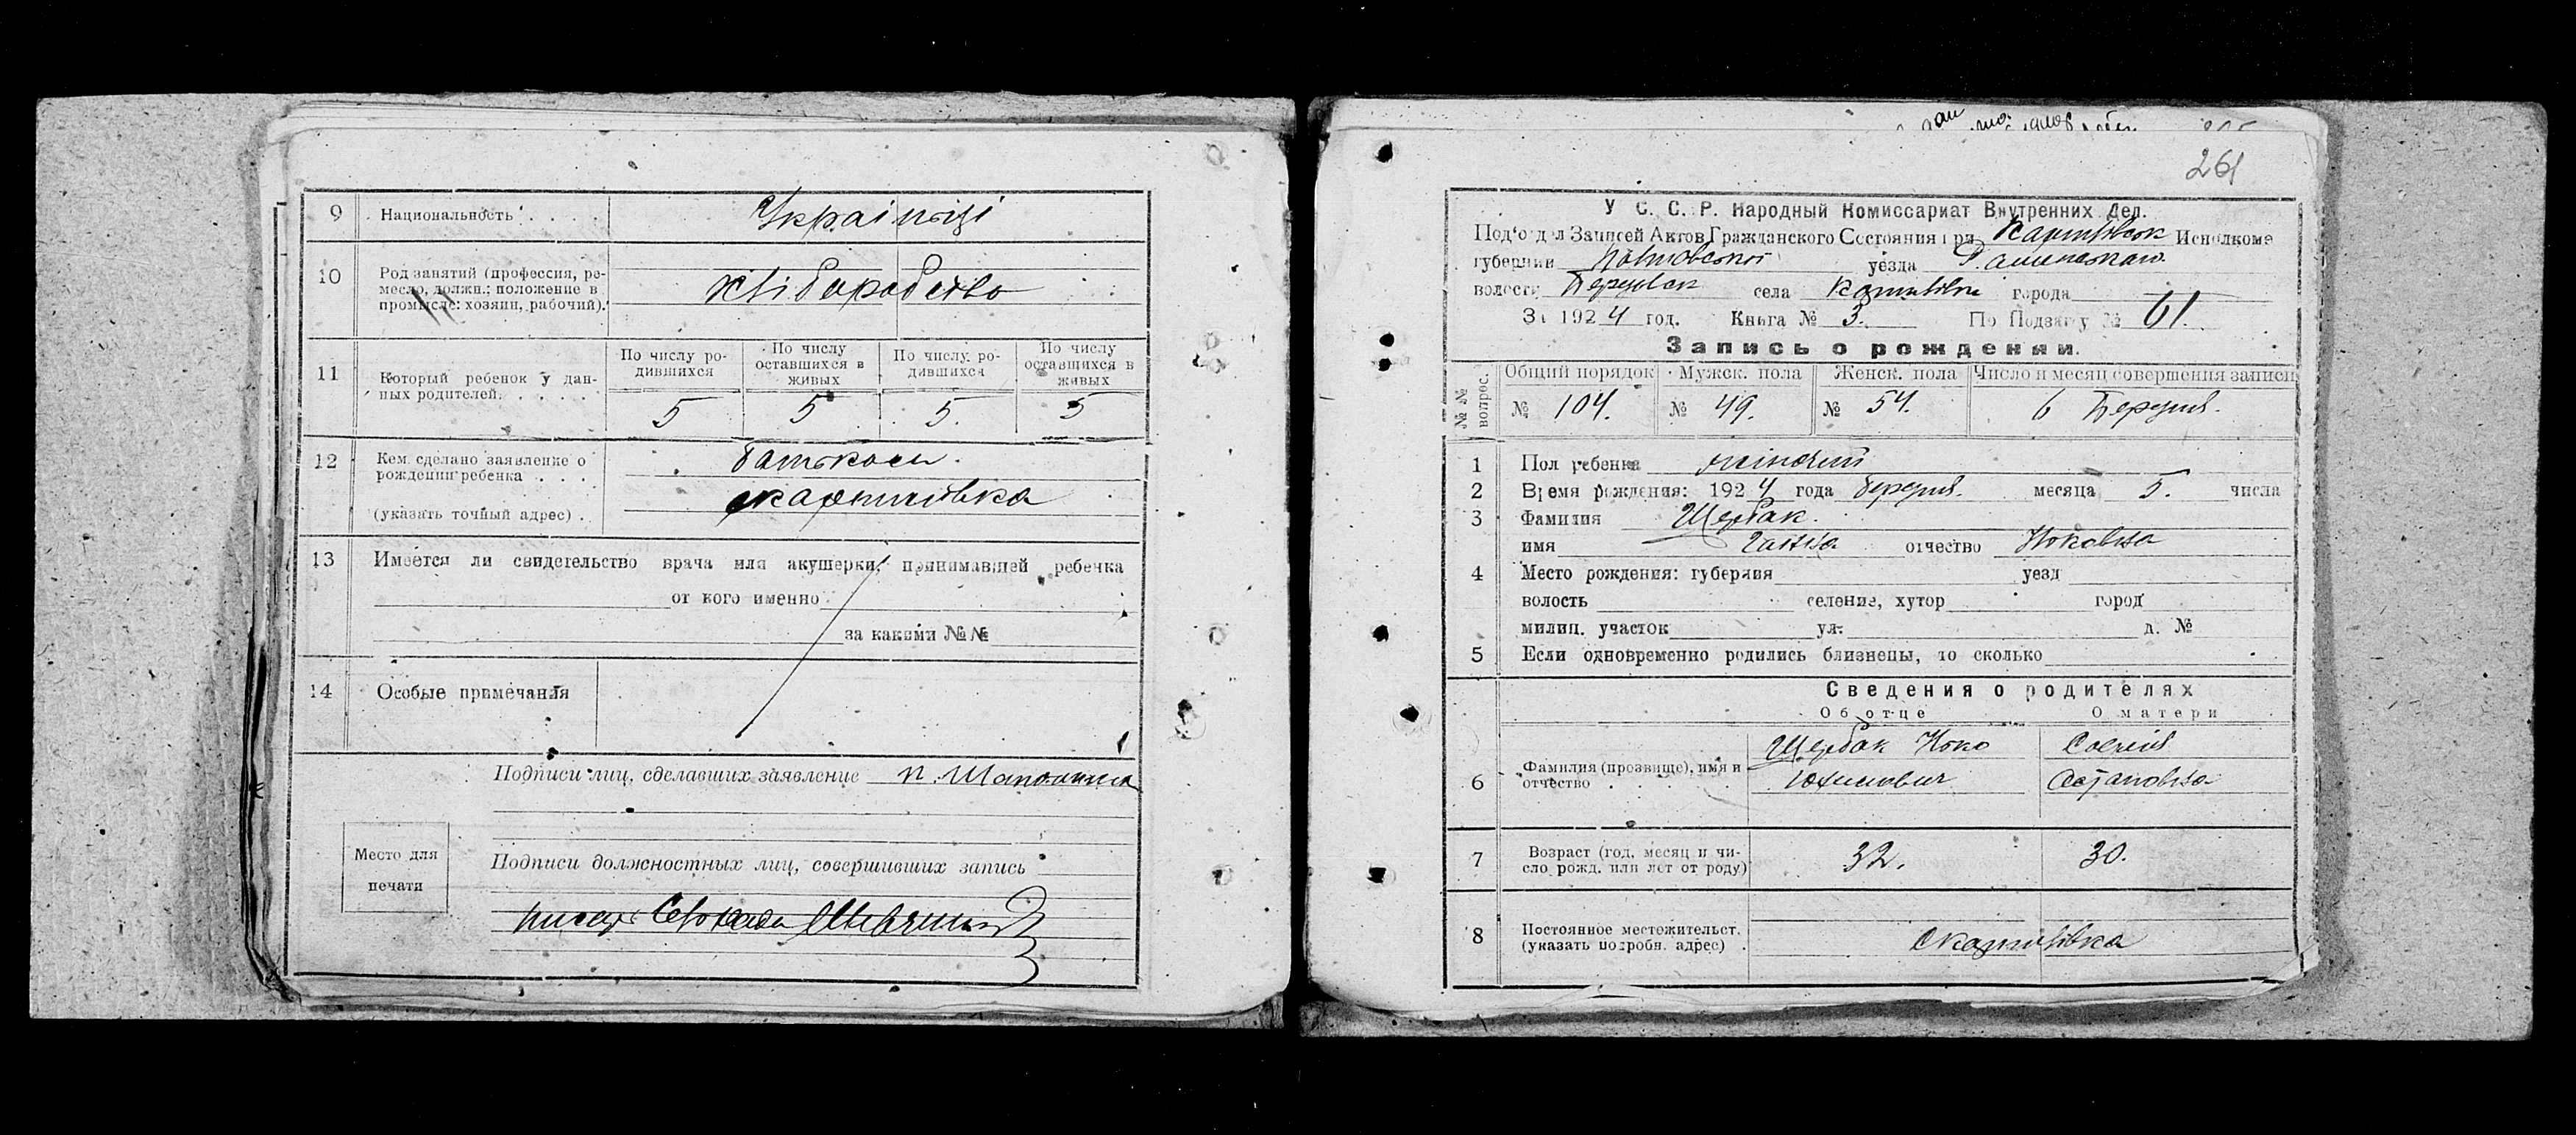 9 Национальность . . . . Українці
10 Род занятий (профессия, ре-
месло, должн.; положение в
промысле: хозяин, рабочий). хліборобство
11 Который ребенок у дан-
ных родителей. . . . . .
По числу ро-
дившихся
По числу
оставшихся в
живых
По числу ро-
дившихся
По числу
оставшихся в
живых
5 5 5. 5
12 Кем сделано заявление о
рождении ребенка . . . батьком.
(указать точный адрес) .
13 Имеется ли свидетельство врача или акушерки, принимавшей ребенка
от кого именно
за какими №№
14 Особые примечания
Подписи лиц, сделавших заявление п.
Место для
печати
Подписи должностных лиц, совершивших запись
261
У С. С. Р. Народный Комиссариат Внутренних Дел.
Под'отдел Записей Актов Гражданского Состояния при Исполкоме
губернии уезда
волости села города
За 1924 год. Книга № 3. По Подзагу № 61.
Запись о рождении.
№№ вопрос.
Общий порядок Мужск. пола Женск. пола Число и месяц совершения записи
№ 104. № 49. № 54. 6 Березня.
1 Пол ребенка жіночий
2 Время рождения: 1924 года березня. месяца 5. числа
3 Фамилия Щербак.
имя отчество
4 Место рождения: губерния уезд
волость селение, хутор город
милиц. участок ул. д. №
5 Если одновременно родились близнецы, то сколько
Сведения о родителях
Об отце О матери
6 Фамилия (прозвище), имя и
отчество . . . . .
Щербак
Юхимович
7 Возраст (год, месяц и чи-
сло рожд. или лет от роду) 32. 30.
8 Постоянное местожительст.
(указать подробн. адрес) .